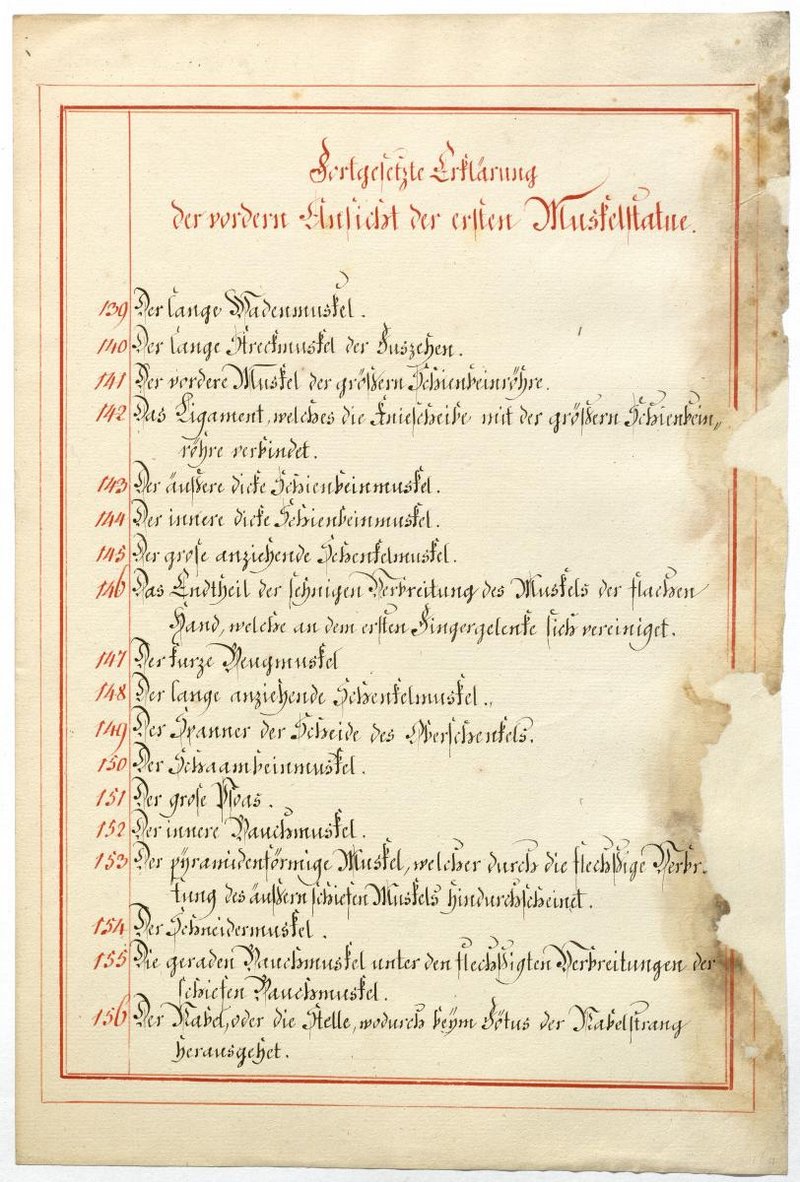 Fortgesetzte Erklärung
der vordern Ansicht der ersten Muskelstatue.
139 Der lange Wadenmuskel.
140 Der lange Streckmuskel der Fuszehen.
141 Der vordere Muskel der größern Schienbeinröhre.
142 Das Ligament, welches die Kniescheibe mit der größern Schienbein„
röhre verbindet.
143 Der äußere dicke Schienbeinmuskel.
144 Der innere dicke Schienbeinmuskel.
145 Der grose anziehende Schenkelmuskel.
146 Das Endtheil der sehnigen Verbreitung des Muskels der flachen
Hand, welche an dem ersten Fingergelenke sich vereiniget.
147 Der kurze Beugmuskel
148 Der lange anziehende Schenkelmuskel.
149 Der Spanner der Scheide des Oberschenkels.
150 Der Schaambeinmuskel.
151 Der grose Psoas.
152 Der innere Bauchmuskel.
153 Der pyramidenförmige Muskel, welcher durch die flechsige Verbr-
tung des äußern schiefen Muskels hindurchscheinet.
154 Der Schneidermuskel.
155 Die geraden Bauchmuskel unter den flechsigten Verbreitungen der
schiefen Bauchmuskel.
156 Der Nabel, oder die Stelle, wodurch beym Fötus der Nabelstrang
herausgehet.